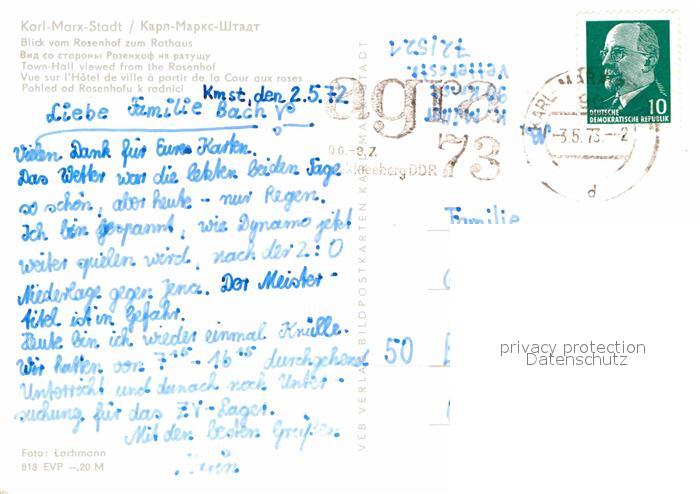 Karl-Marx-Stadt / Карл-Маркс-Штадт
Blick vom Rosenhof zum Rathaus
Вид со стороны Розенхоф на ратушу
Town-Hall viewed from the Rosenhof
Vue sur l'Hôtel de ville à partir de la Cour aux roses
Pohled od Rosenhofu k radnici
Kmst, den 2.5.72
Liebe Familie Bach
Vielen Dank für Eure Karten.
Das Wetter war die letzten beiden Tage
so schön, aber heute - nur Regen.
Ich bin gespannt, wie Dynamo jetzt
weiter spielen wird, nach der 2:0
Niederlage gegen Jena. Der Meister-
titel ist in Gefahr.
Heute bin ich wieder einmal Knülle.
Wir hatten von 7¹⁵ - 16¹⁵ durchgehend
Unterricht und danach noch Unter-
suchung für das ZV-Lager.
Mit den besten Grüßen
Foto: Lachmann
818 EVP -,20 M
VEB VERLAG BILDPOSTKARTEN KARL-MARX-STADT
72/521
agra
73
9.6.-8.7.
kleeberg DDR
KARL-MARX
-3.5.73.--2
d
10
DEUTSCHE
DEMOKRATISCHE REPUBLIK
Familie
50
privacy protection
Datenschutz